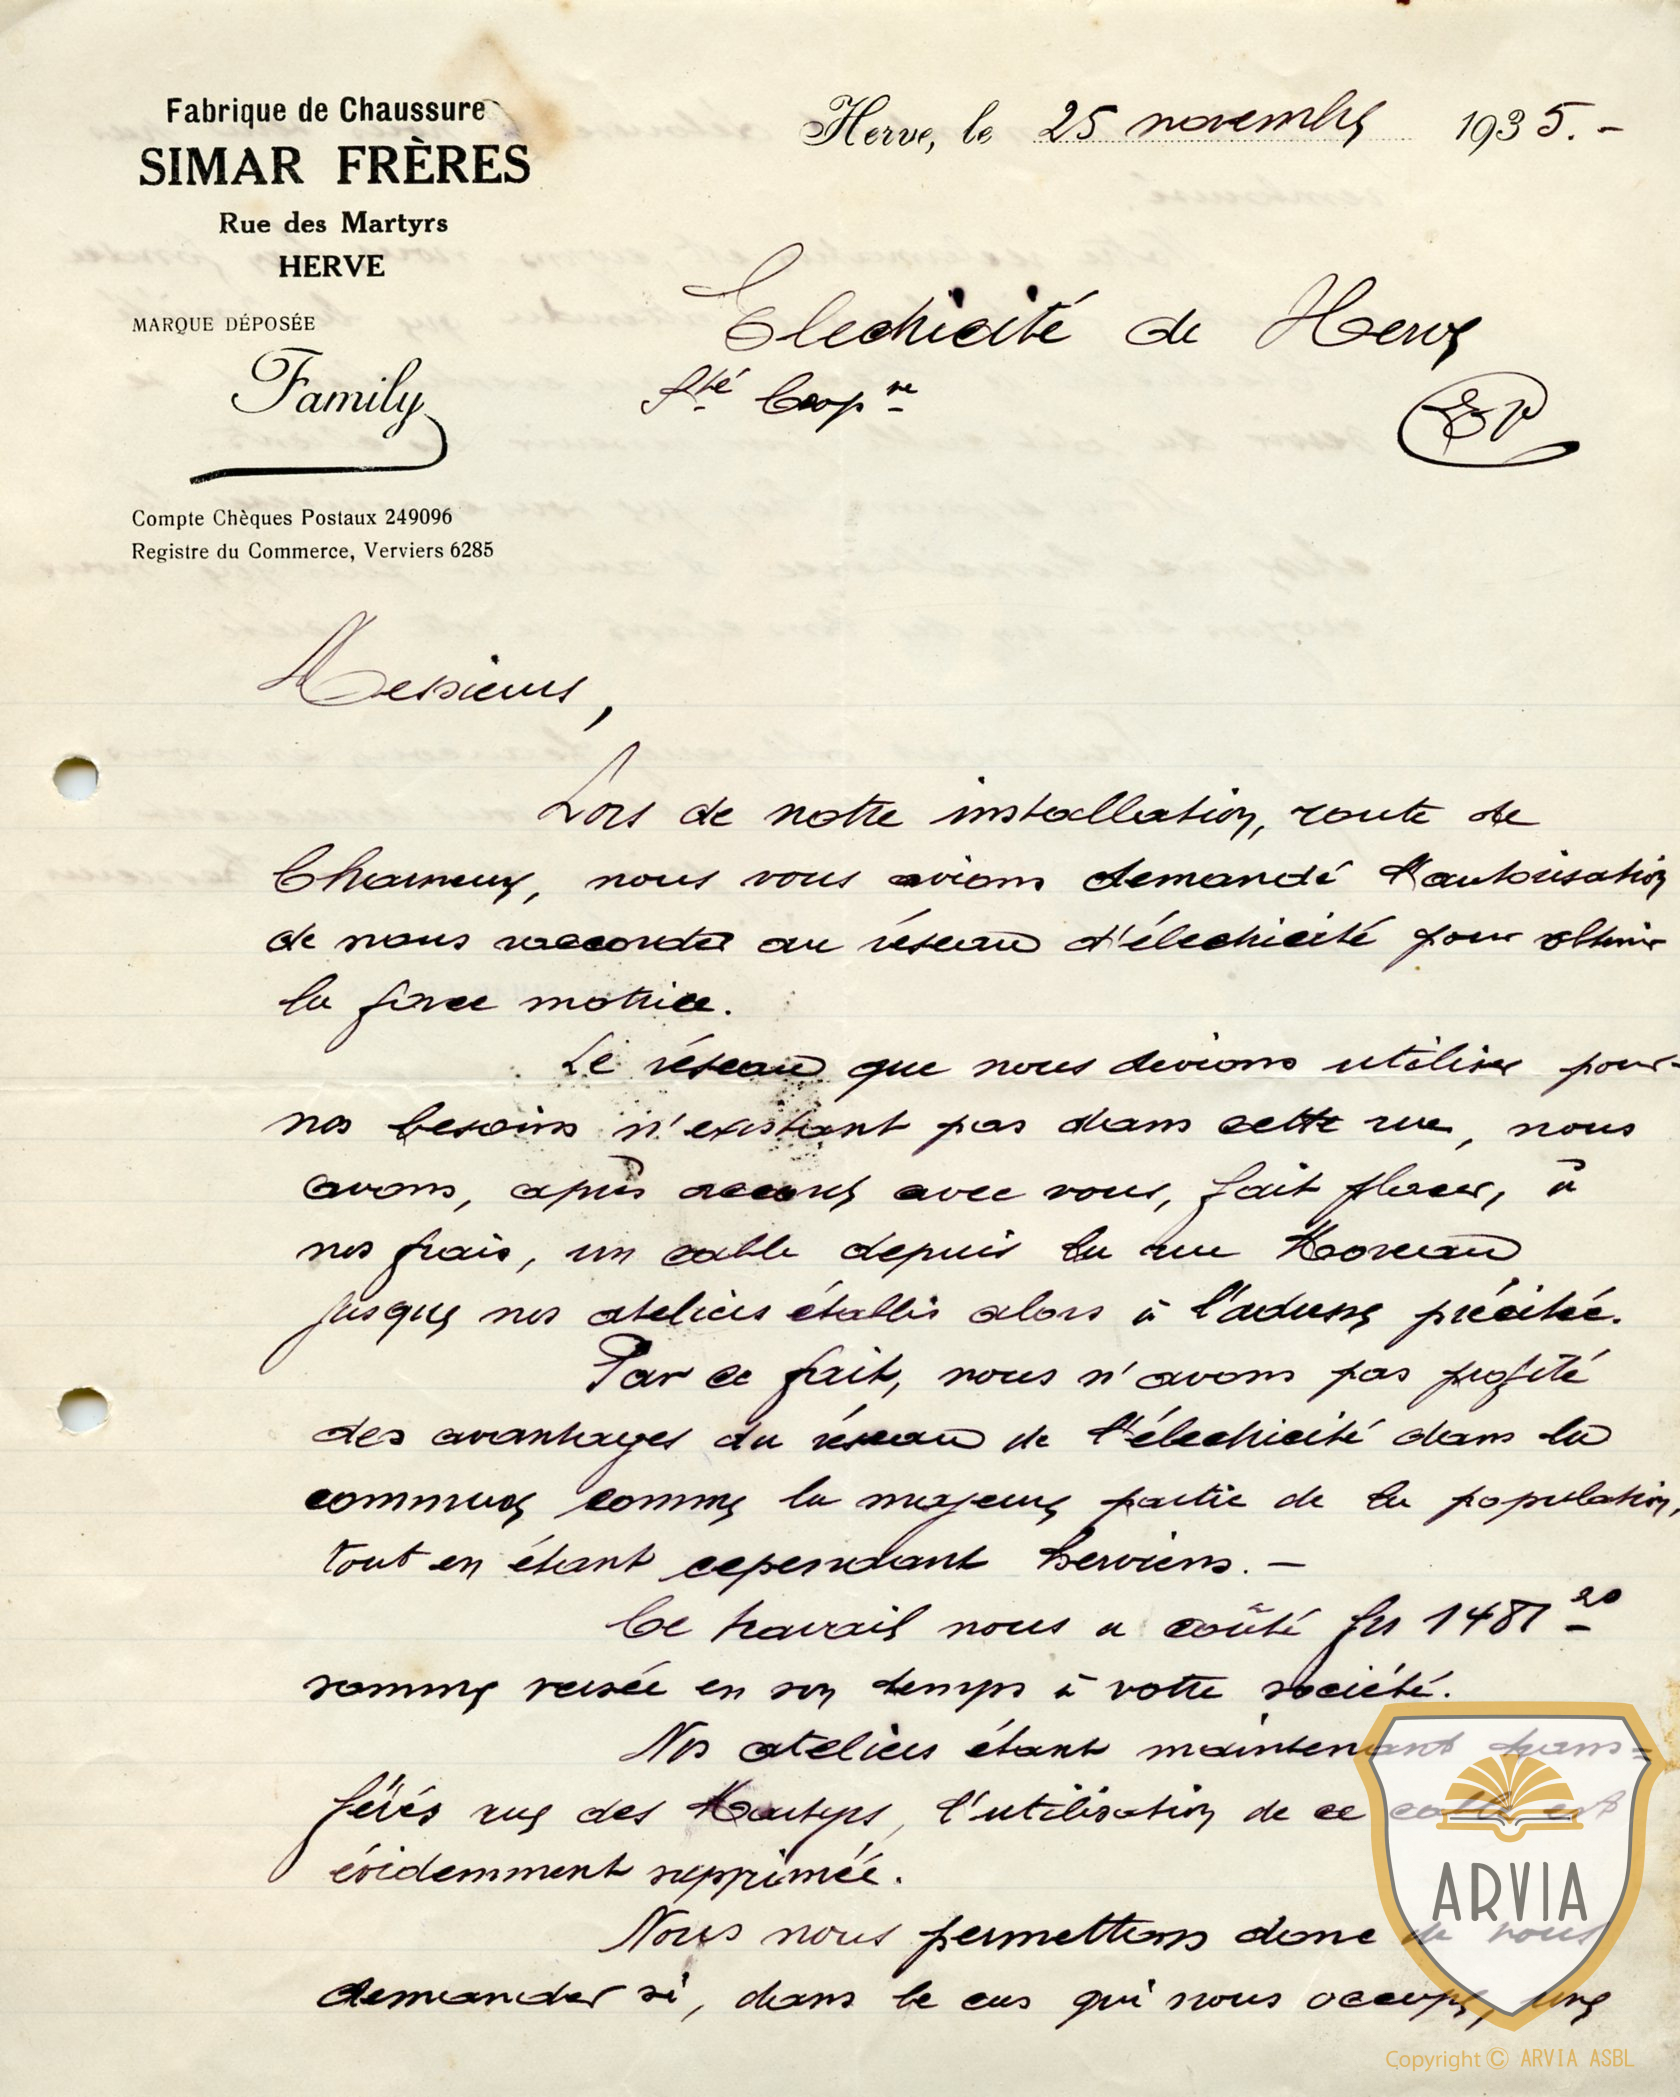 Fabrique de Chaussures
SIMAR FRÈRES
Rue des Martyrs
HERVE
MARQUE DÉPOSÉE
Family
Compte Chèques Postaux 249096
Registre du Commerce, Verviers 6285
Herve, le 25 novembre 1935.-
Electricité de Herve
Sté Coopve
Messieurs,
Lors de notre installation, route de
Charneux, nous vous avions demandé l'autorisation
de nous raccorder au réseau d'électricité pour obtenir
la force motrice.
Le réseau que nous devions utiliser pour
nos besoins n'existant pas dans cette rue, nous
avons, après accord avec vous, fait placer, à
nos frais, un cable depuis la rue Moreau
jusque nos ateliers établis alors à l'adresse précitée.
Par ce fait, nous n'avons pas profité
des avantages du réseau de l'électricité dans la
commune comme la majeure partie de la population,
tout en étant cependant herviens. -
Ce travail nous a coûté frs 1487 20
somme versée en son temps à votre société.
Nos ateliers étant maintenant trans=
férés rue des Martyrs, l'utilisation de ce cable est
évidemment supprimée.
Nous nous permettons donc de vous
demander si, dans le cas qui nous occupe, une
ARVIA
Copyright © ARVIA ASBL